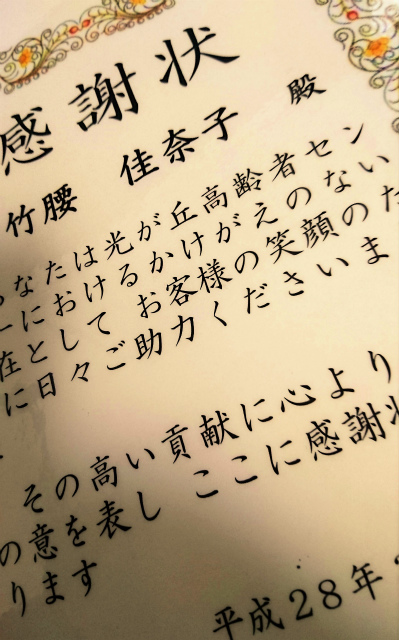 感謝状
竹腰 佳奈子 殿
なたは光が丘高齢者セン
ーにおけるかけがえのない
在として お客様の笑顔のた
に日々ご助力くださいま
その高い貢献に心より
の意を表し ここに感謝状
ります
平成28年